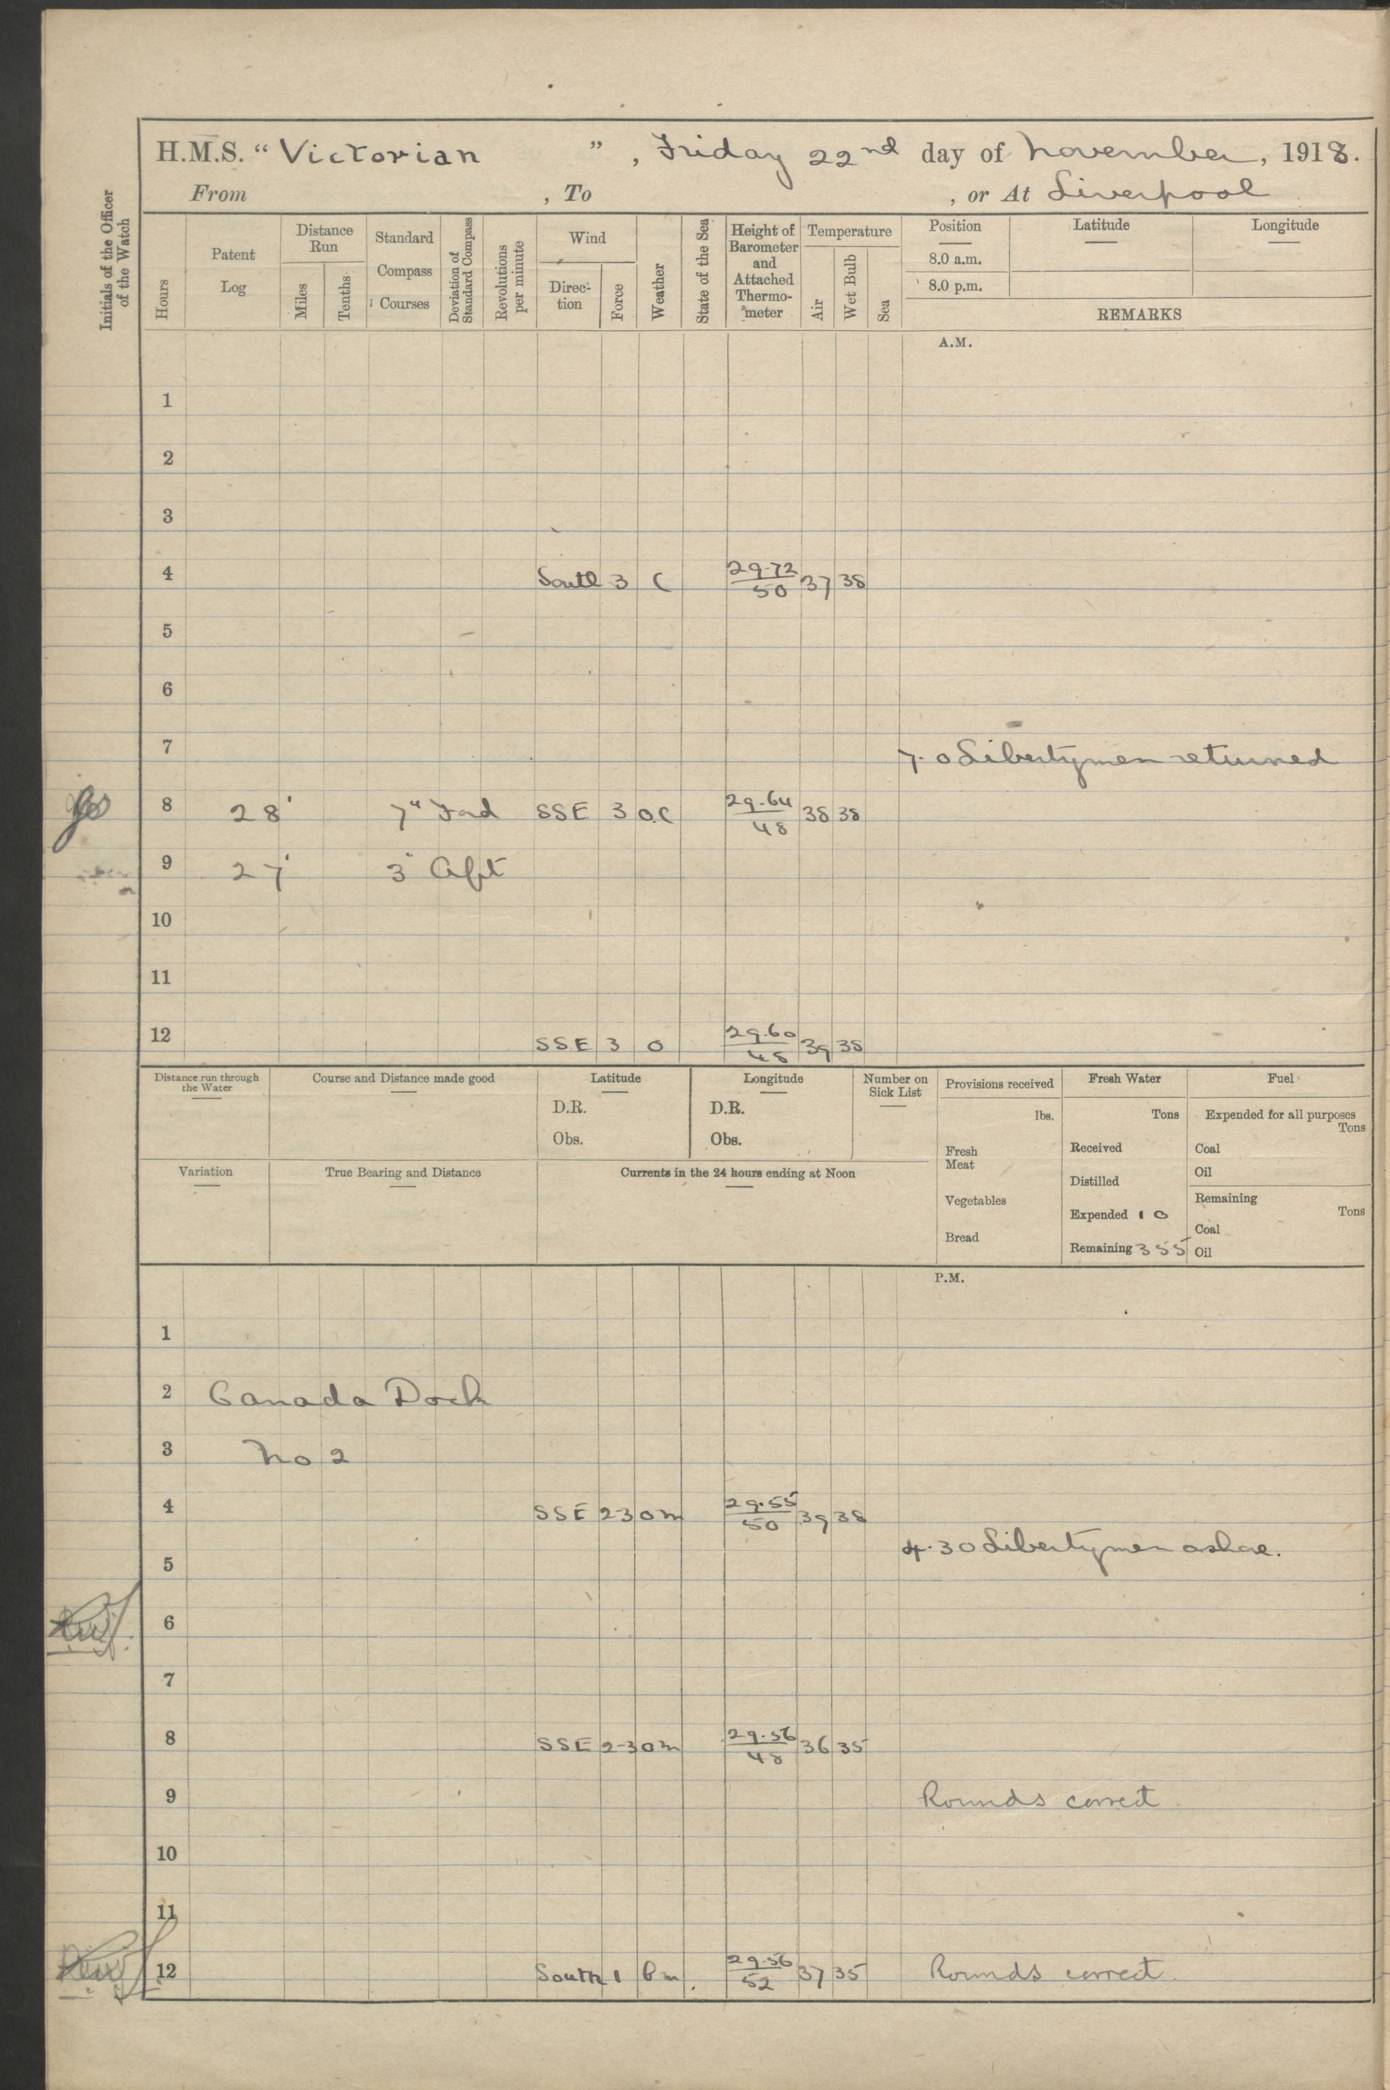 H.M.S. “Victorian ” , Friday 22nd day of November, 1918.
From , To , or At Liverpool
Initials of the Officer of the Watch
Hours
Patent Log
Distance Run
Miles
Tenths
Standard Compass Courses
Deviation of Standard Compass
Revolutions per minute
Wind
Direc-tion
Force
Weather
State of the Sea
Height of Barometer and Attached Thermo-meter
Temperature
Air
Wet Bulb
Sea
Position Latitude Longitude
8.0 a.m.
8.0 p.m.
REMARKS
A.M.
1
2
3
4 South 3 C 29.72/50 37 38
5
6
7 7.0 Libertymen returned
8 28' 7" Ford SSE 3 O.C 29.64/48 38 38
9 27' 3" Aft
10
11
12 SSE 3 O 29.60/48 39 38
Distance run through the Water
Course and Distance made good
Latitude
D.R.
Obs.
Longitude
D.R.
Obs.
Number on Sick List
Provisions received
lbs.
Fresh Meat
Vegetables
Bread
Fresh Water
Tons
Received
Distilled
Expended 10
Remaining 355
Fuel
Expended for all purposes
Tons
Coal
Oil
Remaining
Tons
Coal
Oil
Variation
True Bearing and Distance
Currents in the 24 hours ending at Noon
P.M.
1
2 Canada Dock
3 No 2
4 SSE 2-3 om 29.55/50 39 38
4.30 Libertymen ashore.
5
6
7
8 SSE 2-3 om 29.56/48 36 35
9 Rounds correct
10
11
12 South 1 bm 29.56/52 37 35 Rounds correct